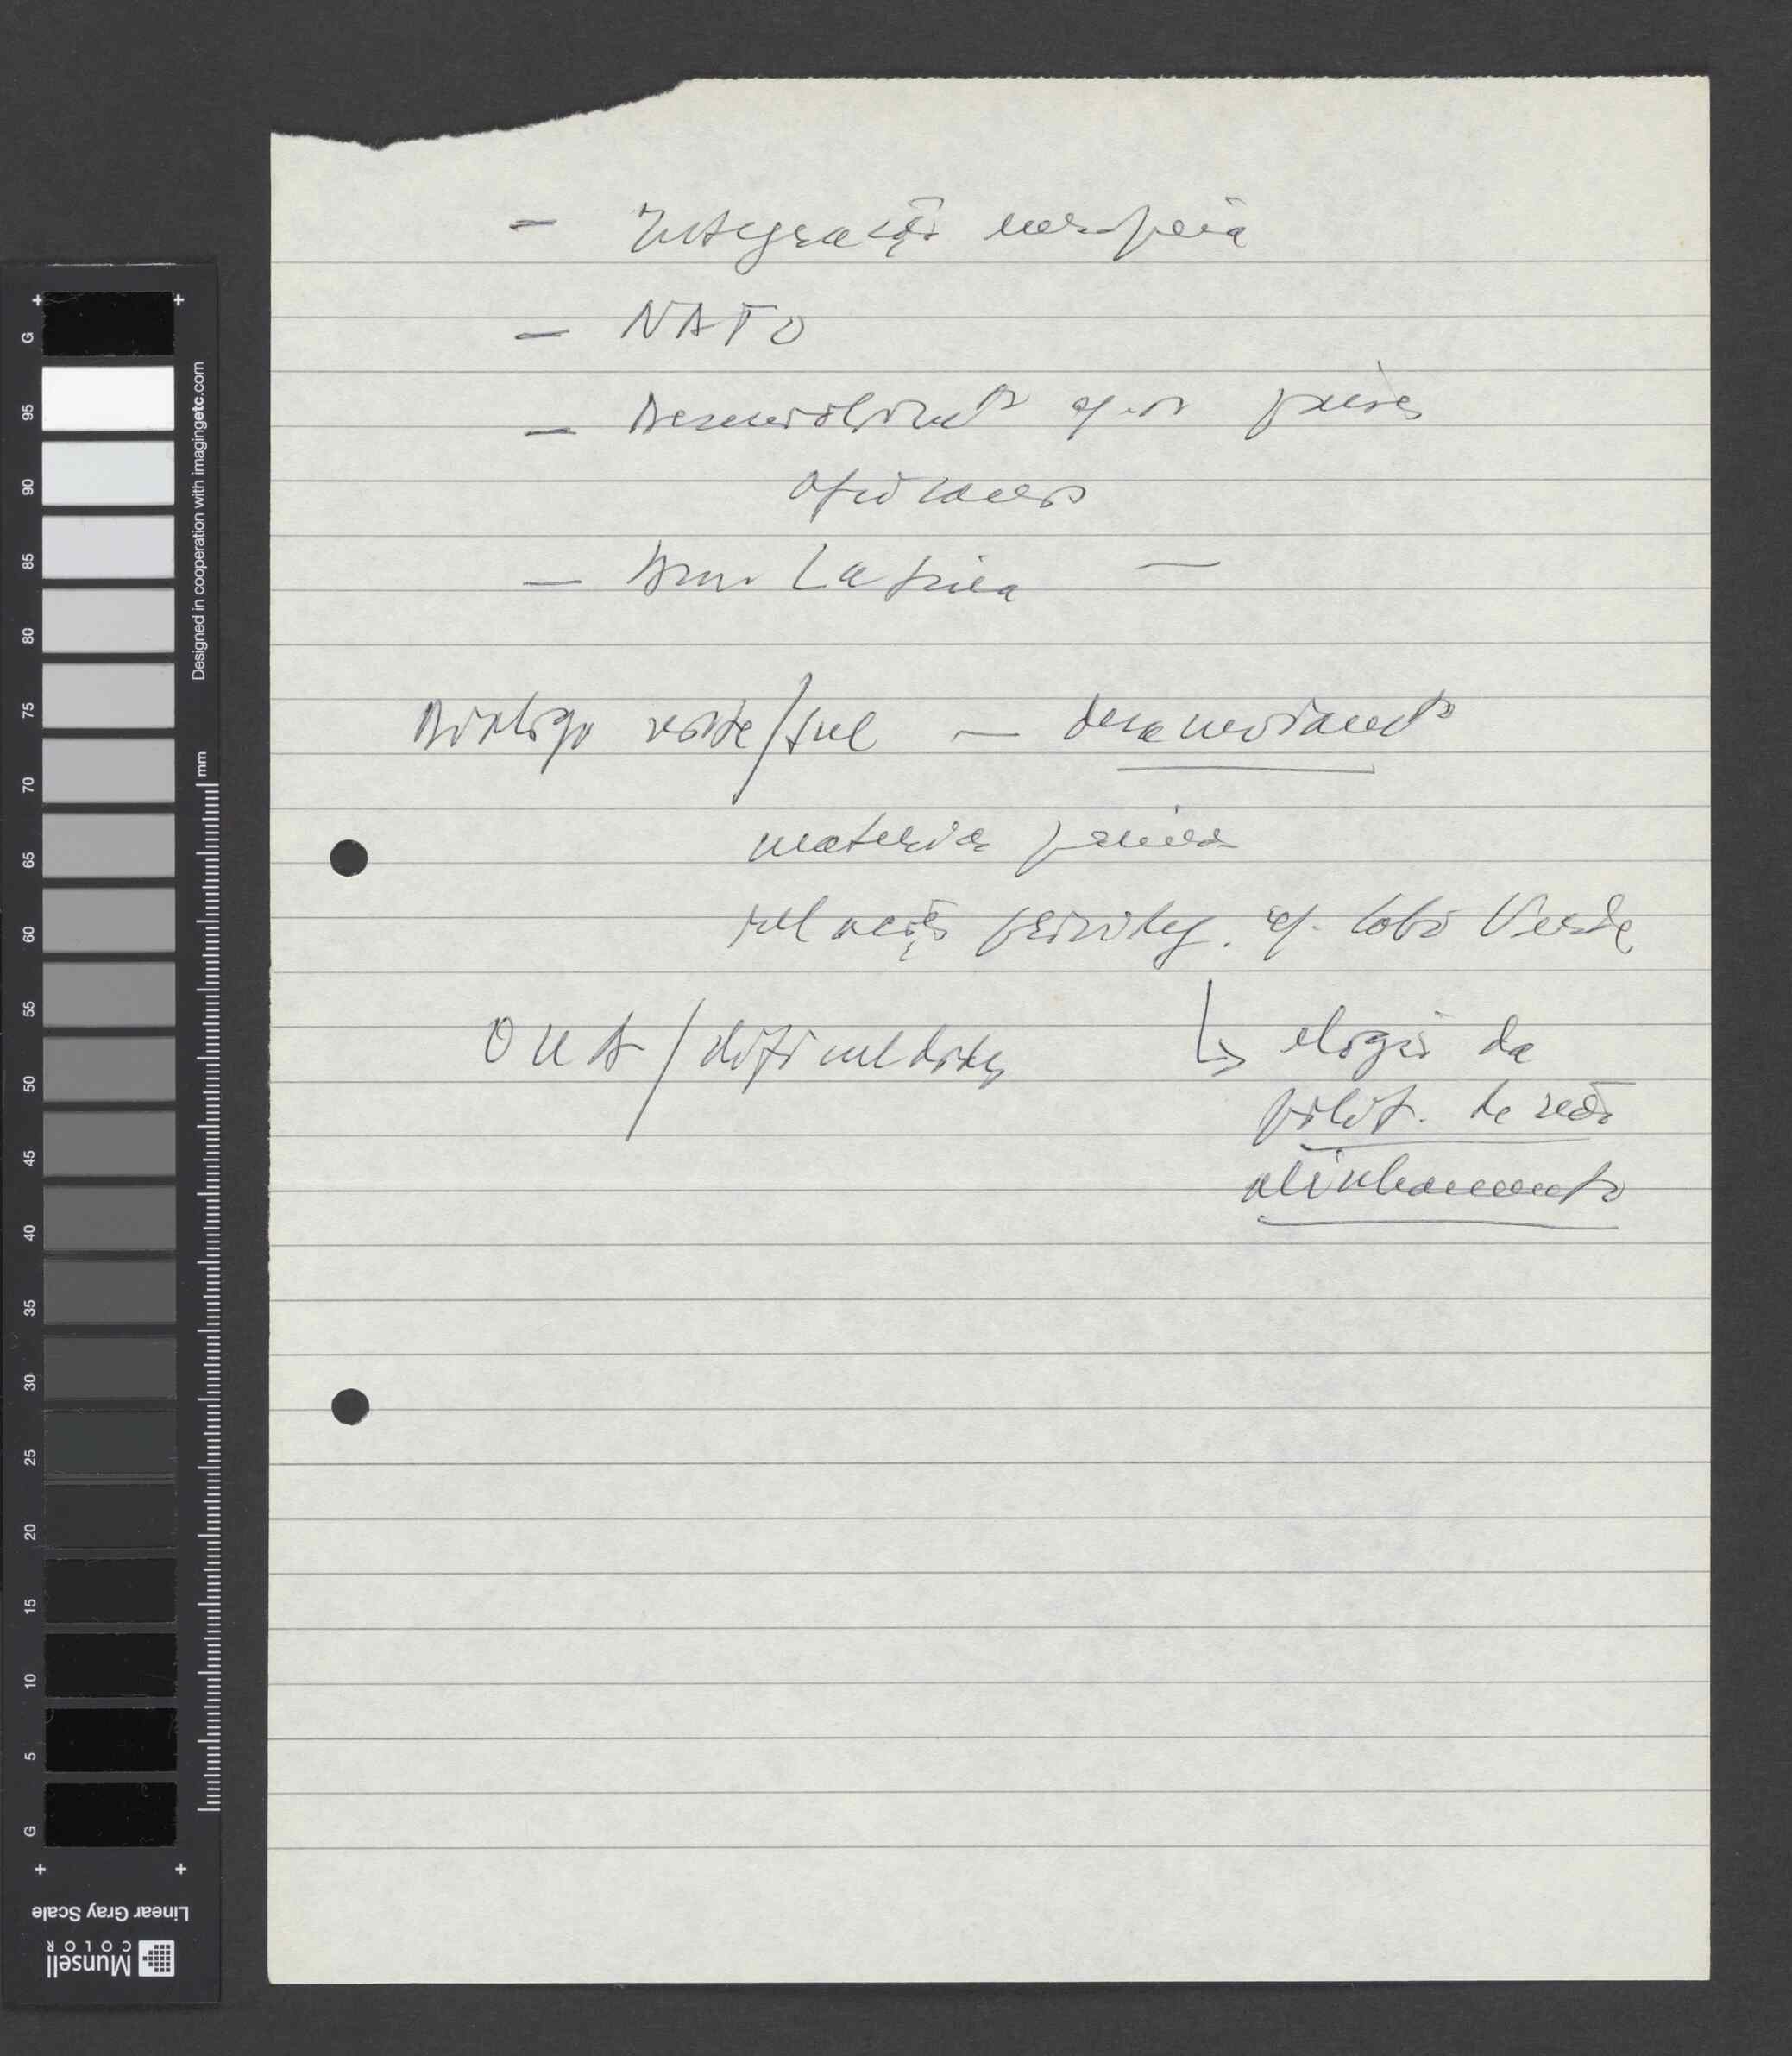 — Integração europeia
— NATO
— Desenvolvimto c/ os países
africanos
— Am. Latina —
Diálogo norte/sul — desanuviamto
matérias primas
relações privileg. c/ Cabo Verde
OUA / dificuldades
↳ elogio da
polít. de não
alinhamento
+ G 95 90 85 80 75 70 65 60 55 50 45 40 35 30 25 20 15 10 5 G +
Designed in cooperation with imagingetc.com
mm
Linear Gray Scale
Munsell
COLOR